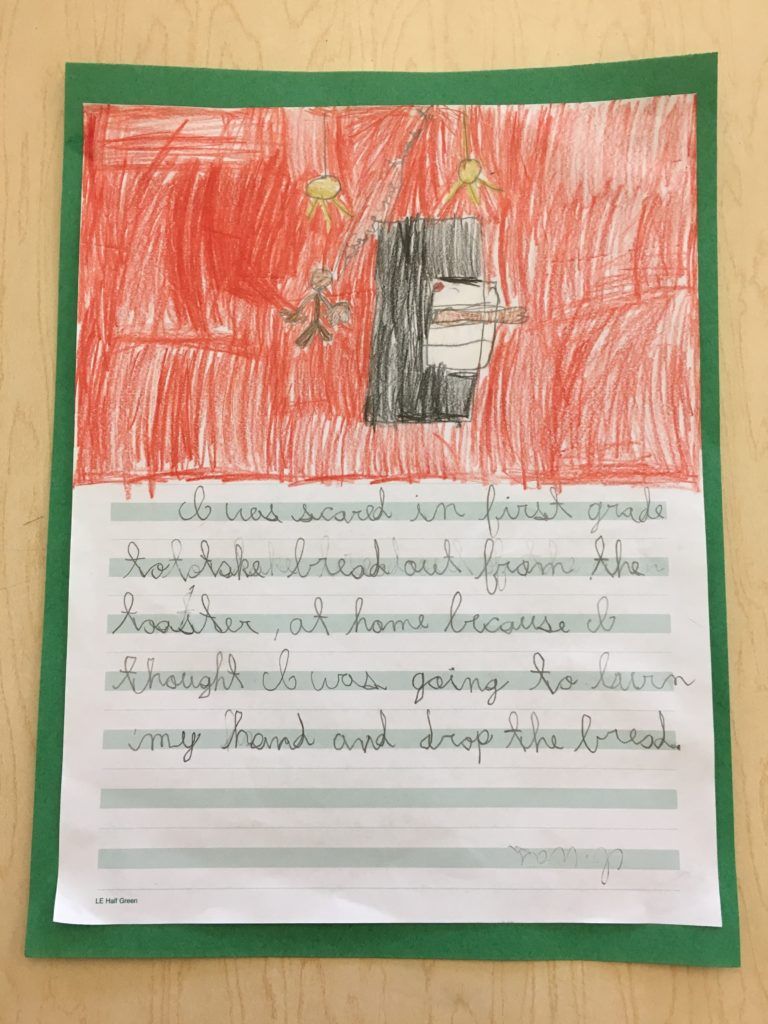 I was scared in first grade
to take bread out from the
toaster, at home because I
thought I was going to burn
my hand and drop the bread.
I was
LE Half Green